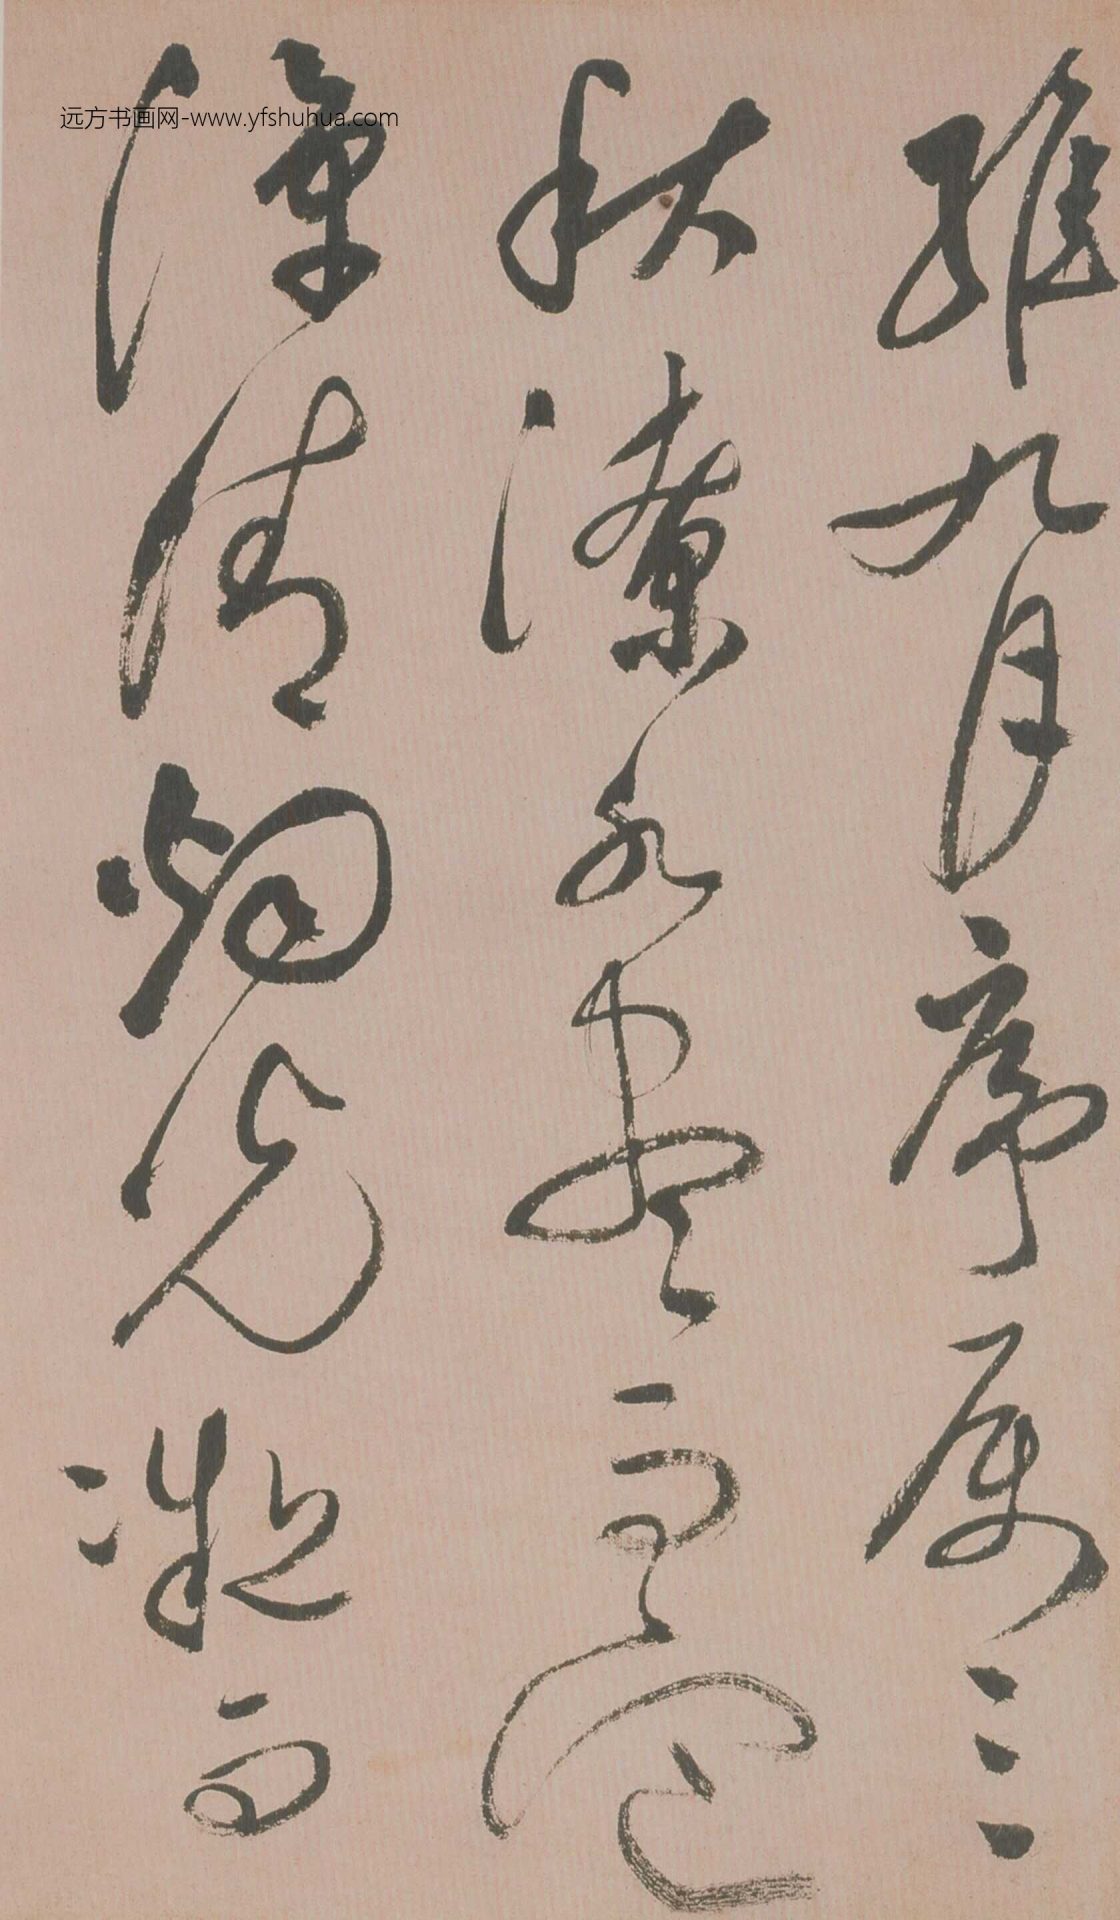 維九月序属三
秋潦水盡而寒
潭清烟光凝而
远方书画网-www.yfshuhua.com